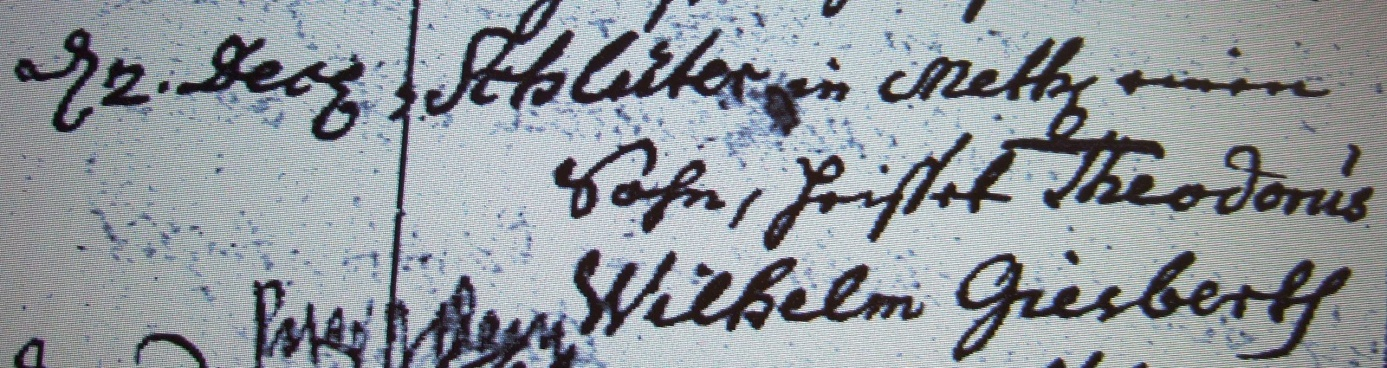 22. Decz Schlüter in Methe einen
Sohn, heisset Theodorus
Wilhelm Giesberth